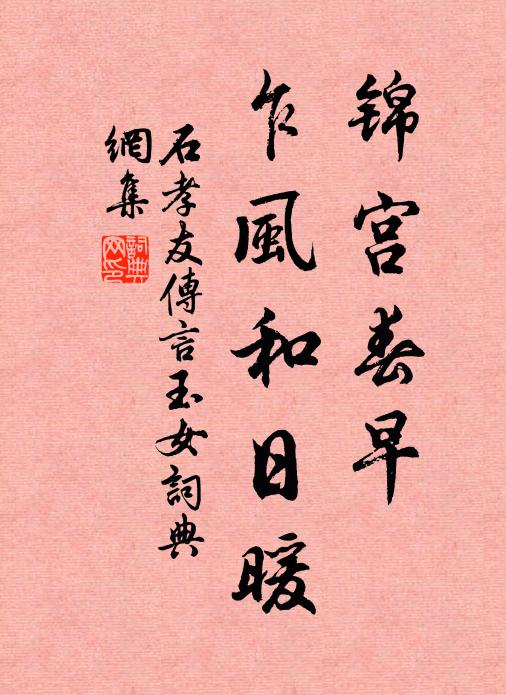 锦宫春早
乍風和日暖
石孝友傳言玉女詞典
網集
詞典
网印